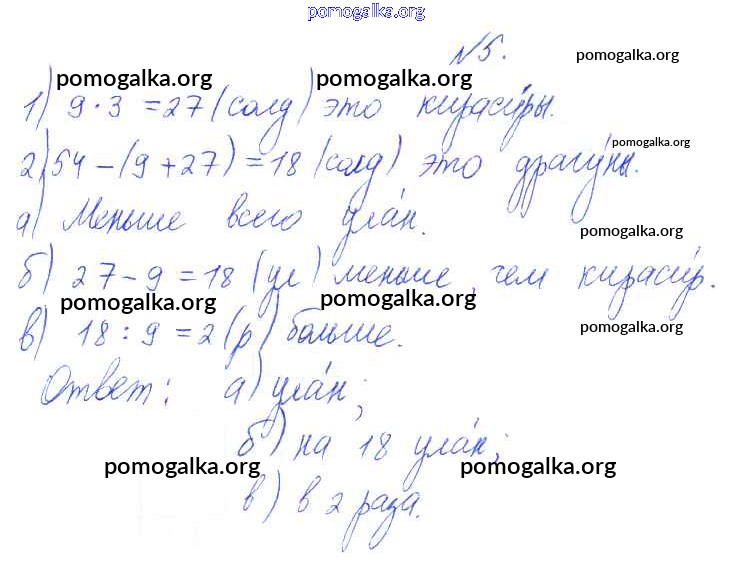 pomogalka.org
№5.
pomogalka.org
pomogalka.org pomogalka.org
1) 9 · 3 = 27 (солд) это кираси́ры.
pomogalka.org
2) 54 - (9 + 27) = 18 (солд) это драгу́ны.
а) Меньше всего ула́н.
pomogalka.org
б) 27 - 9 = 18 (ул) меньше, чем кираси́р.
pomogalka.org pomogalka.org
pomogalka.org
в) 18 : 9 = 2 (р) больше.
Ответ: а) ула́н;
б) на 18 ула́н;
pomogalka.org pomogalka.org
в) в 2 раза.